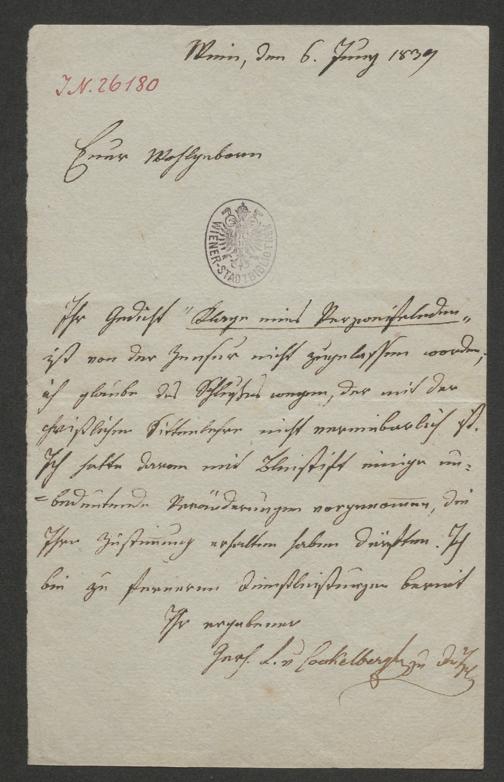 Wien, den 6. Juny 1839
I.N. 26180
Euer Wohlgeborn
WIENER-STADTBIBLIOTHEK
Ihr Gedicht "Klage eines Verzweifelnden„
ist von der Zensur nicht zugelassen worden,
ich glaube des Schlußes wegen, der mit der
christlichen Sittenlehre nicht vereinbarlich ist.
Ich hatte daran mit Bleistift einige un-
=bedeutende Veränderungen vorgenommen, die
Ihre Zustimmung erhalten haben dürften. Ich
bin zu ferneren Dienstleistungen bereit
Ihr ergebener
L. v Coekelberghe zu